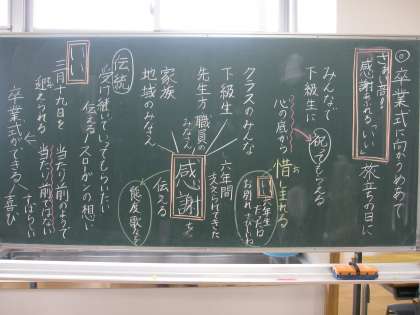 ◎卒業式に向かうめあて
感謝あふれる「いい」
旅立ちの日に
みんなで
下級生に
祝ってもらえる
心の底から
惜しまれる
お
クラスのみんな
下級生
先生方
職員の
みなさん
家族
地域のみなさん
六年生
お別れ
六年間
支えられてきた
感謝を
伝える
態度
歌
伝統
受け継いでいってもらいたい
伝える
スローガンの想い
い
三月十九日を
迎えられる
当たり前のようで
当たり前ではない
すばらしい
卒業式ができる
喜び